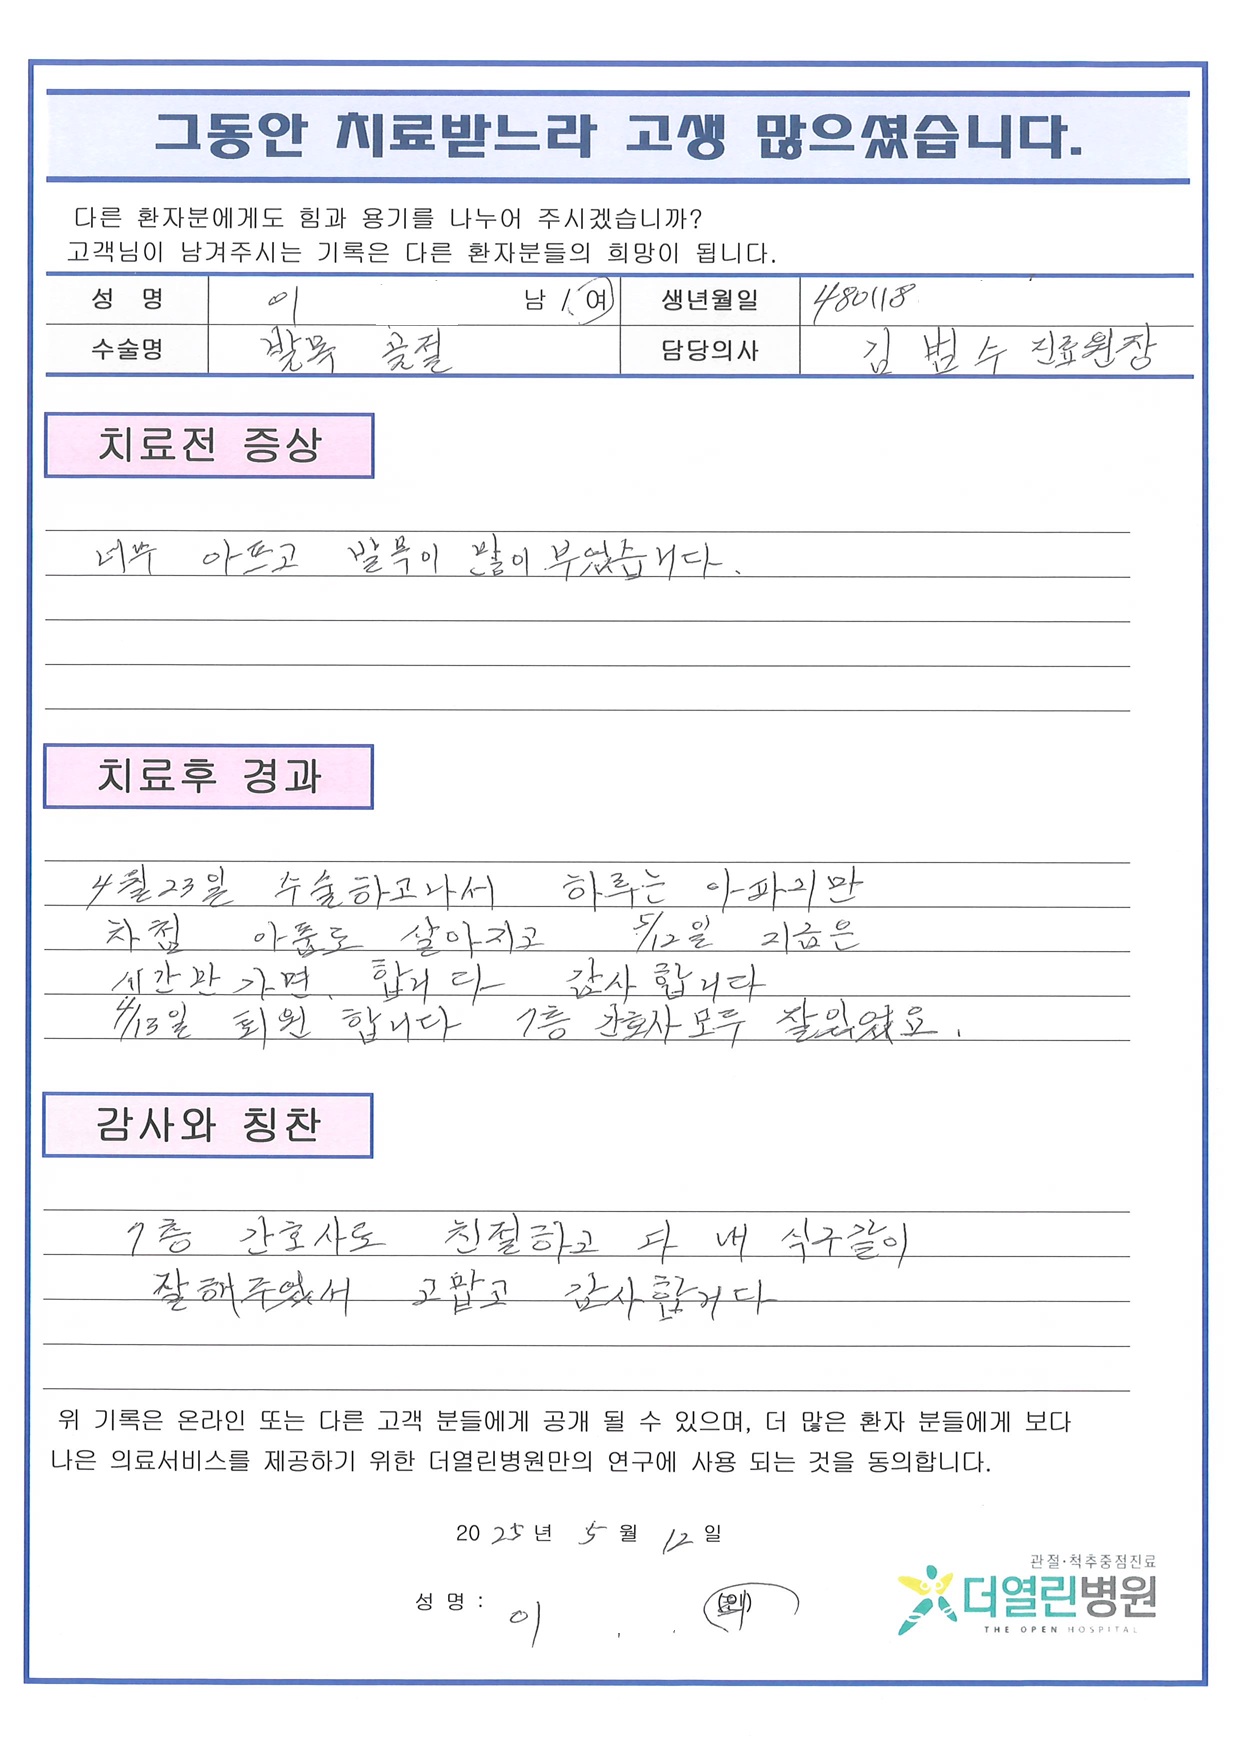 그동안 치료받느라 고생 많으셨습니다.
다른 환자분에게도 힘과 용기를 나누어 주시겠습니까?
고객님이 남겨주시는 기록은 다른 환자분들의 희망이 됩니다.
성 명 이 남 / 여 생년월일 480118
수술명 발목 골절 담당의사 김 범 수 진료원장
치료전 증상
너무 아프고 발목이 많이 부었습니다.
치료후 경과
4월23일 수술하고나서 하루는 아파지만
차첨 아품도 살아지고 5/12일 지금은
시간만 가면. 합니다 감사합니다
4/13일 퇴원 합니다 7층 간호사 모두 잘있었요.
감사와 칭찬
7층 간호사도 친절하고 다 내 식구같이
잘해주었서 고맙고 감사합니다
위 기록은 온라인 또는 다른 고객 분들에게 공개 될 수 있으며, 더 많은 환자 분들에게 보다
나은 의료서비스를 제공하기 위한 더열린병원만의 연구에 사용 되는 것을 동의합니다.
2025년 5월 12일
성 명 : 이 (인)
관절·척추중점진료
더열린병원
THE OPEN HOSPITAL